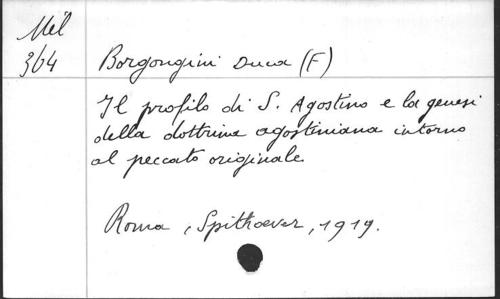 Mél
364
Borgongini Duca (F)
Il profilo di S. Agostino e la genesi
della dottrina agostiniana intorno
al peccato originale.
Roma, Spithoever, 1919.